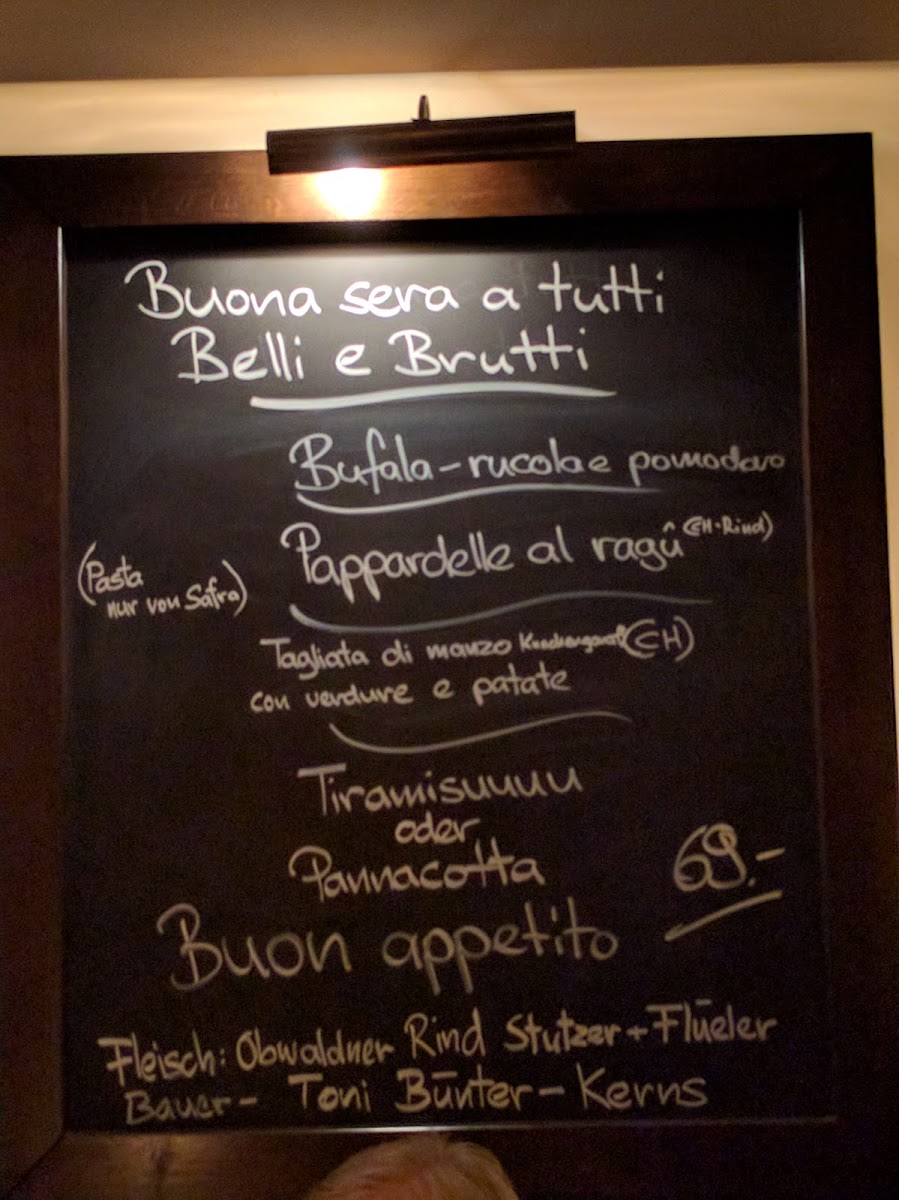 Buona sera a tutti
Belli e Brutti
Bufala-rucola e pomodoro
Pappardelle al ragû (CH-Rind)
(Pasta
nur von Safra)
Tagliata di manzo (CH)
con verdure e patate
Tiramisuuuu
oder
Pannacotta
69.-
Buon appetito
Fleisch: Obwaldner Rind Stutzer + Flüeler
Bauer - Toni Bünter - Kerns